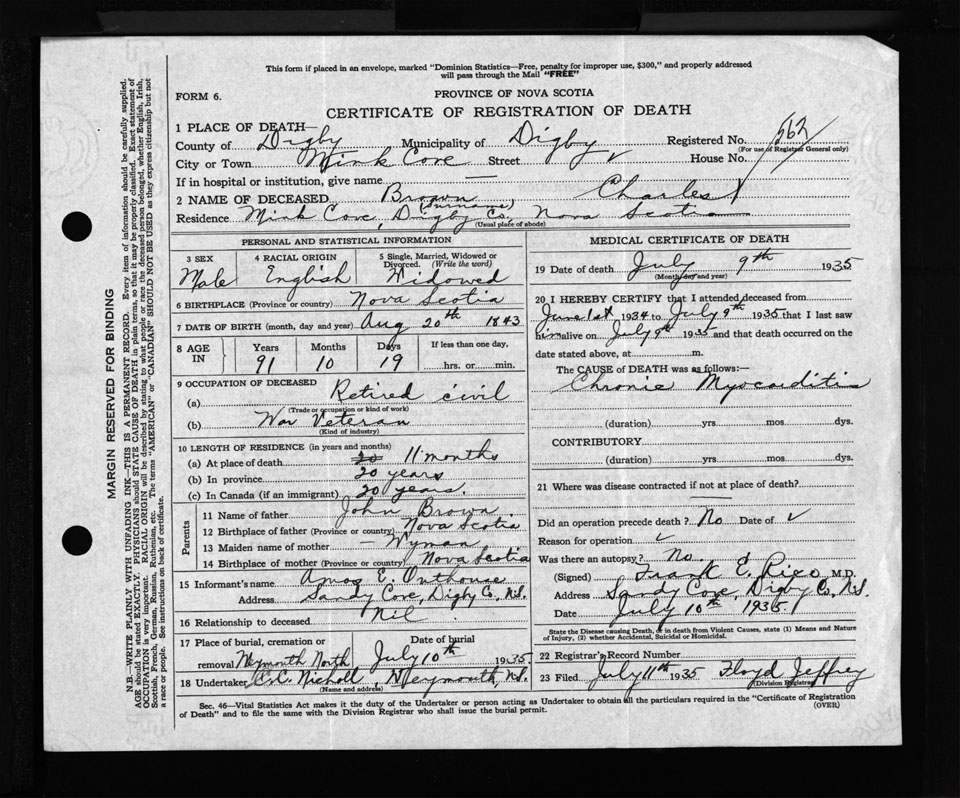 This form if placed in an envelope, marked "Dominion Statistics—Free, penalty for improper use, $300," and properly addressed
will pass through the Mail "FREE"
FORM 6.
PROVINCE OF NOVA SCOTIA
CERTIFICATE OF REGISTRATION OF DEATH
1 PLACE OF DEATH—
County of Digby Municipality of Digby Registered No. 562
(For use of Registrar General only)
City or Town Mink Cove Street ✓ House No.
If in hospital or institution, give name —
2 NAME OF DECEASED Brown Charles
(Surname)
Residence Mink Cove, Digby Co. Nova Scotia
(Usual place of abode)
PERSONAL AND STATISTICAL INFORMATION
3 SEX 4 RACIAL ORIGIN 5 Single, Married, Widowed or
Divorced. (Write the word)
Male English Widowed
6 BIRTHPLACE (Province or country) Nova Scotia
7 DATE OF BIRTH (month, day and year) Aug 20th 1843
8 AGE IN Years Months Days If less than one day,
91 10 19 hrs. or min.
9 OCCUPATION OF DECEASED
(a) Retired civil
(Trade or occupation or kind of work)
(b) War Veteran
(Kind of industry)
10 LENGTH OF RESIDENCE (in years and months)
(a) At place of death 20 11 months
(b) In province 20 years
(c) In Canada (if an immigrant) 20 years.
Parents
11 Name of father John Brown.
12 Birthplace of father (Province or country) Nova Scotia
13 Maiden name of mother — Wyman
14 Birthplace of mother (Province or country) Nova Scotia
15 Informant's name Amos E. Outhouse
Address Sandy Cove, Digby Co., N.S.
16 Relationship to deceased Nil
17 Place of burial, cremation or Date of burial
removal Weymouth North July 10th 1935
18 Undertaker C.C. Nicholl Weymouth, N.S.
(Name and address)
MEDICAL CERTIFICATE OF DEATH
19 Date of death July 9th 1935
(Month day and year)
20 I HEREBY CERTIFY that I attended deceased from
June 1st 1934 to July 9th 1935 that I last saw
him alive on July 9th 1935 and that death occurred on the
date stated above, at m.
The CAUSE of DEATH was as follows:
Chronic Myocarditis
(duration) yrs mos dys.
CONTRIBUTORY
(duration) yrs. mos dys.
21 Where was disease contracted if not at place of death?
—
Did an operation precede death? No Date of ✓
Reason for operation ✓
Was there an autopsy? No.
(Signed) Frank E. Rice M.D.
Address Sandy Cove, Digby Co, N.S.
Date July 10th 1935
State the Disease causing Death, or in death from Violent Causes, state (1) Means and Nature
of Injury, (2) whether Accidental, Suicidal or Homicidal.
22 Registrar's Record Number
23 Filed July 11th 1935 Floyd Jeffrey
Division Registrar
Sec. 46—Vital Statistics Act makes it the duty of the Undertaker or person acting as Undertaker to obtain all the particulars required in the "Certificate of Registration
of Death" and to file the same with the Division Registrar who shall issue the burial permit.
(OVER)
MARGIN RESERVED FOR BINDING
N.B.—WRITE PLAINLY WITH UNFADING INK—THIS IS A PERMANENT RECORD. Every item of information should be carefully supplied.
AGE should be stated EXACTLY. PHYSICIANS should STATE CAUSE OF DEATH in plain terms, so that it may be properly classified. Exact statement of
OCCUPATION is very important. RACIAL ORIGIN will be described by stating to what people or race the deceased person belonged, whether English, Irish,
Scottish, French, German, Russian, Ruthenian, etc. The terms "AMERICAN" or "CANADIAN" SHOULD NOT BE USED as they express citizenship but not
a race or people. See instructions on back of certificate.